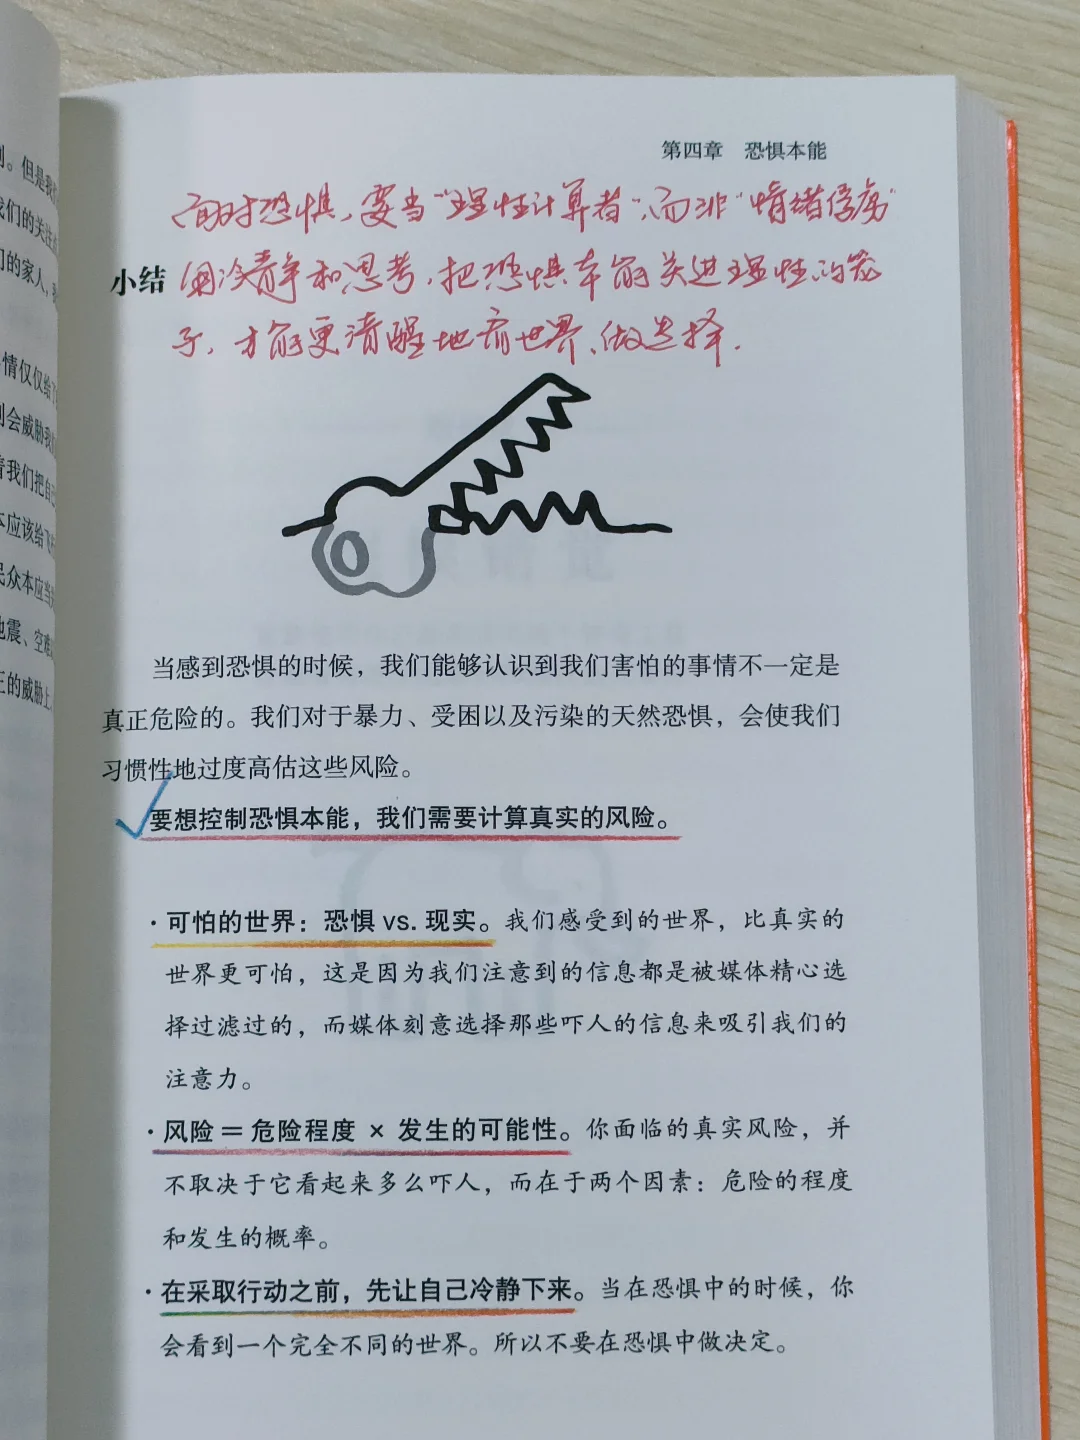 第四章 恐惧本能
面对恐惧，要当“理性计算者”，而非“情绪俘虏”
小结
用冷静和思考，把恐惧本能关进理性的笼
子，才能更清醒地看世界、做选择.
当感到恐惧的时候，我们能够认识到我们害怕的事情不一定是
真正危险的。我们对于暴力、受困以及污染的天然恐惧，会使我们
习惯性地过度高估这些风险。
要想控制恐惧本能，我们需要计算真实的风险。
· 可怕的世界：恐惧 vs. 现实。我们感受到的世界，比真实的
世界更可怕，这是因为我们注意到的信息都是被媒体精心选
择过滤过的，而媒体刻意选择那些吓人的信息来吸引我们的
注意力。
· 风险＝危险程度 × 发生的可能性。你面临的真实风险，并
不取决于它看起来多么吓人，而在于两个因素：危险的程度
和发生的概率。
· 在采取行动之前，先让自己冷静下来。当在恐惧中的时候，你
会看到一个完全不同的世界。所以不要在恐惧中做决定。
。但是我
我们的关注
们的家人，
情仅仅给
会威胁我
着我们把自己
本应该给飞
民众本应当
地震、空难
正的威胁上